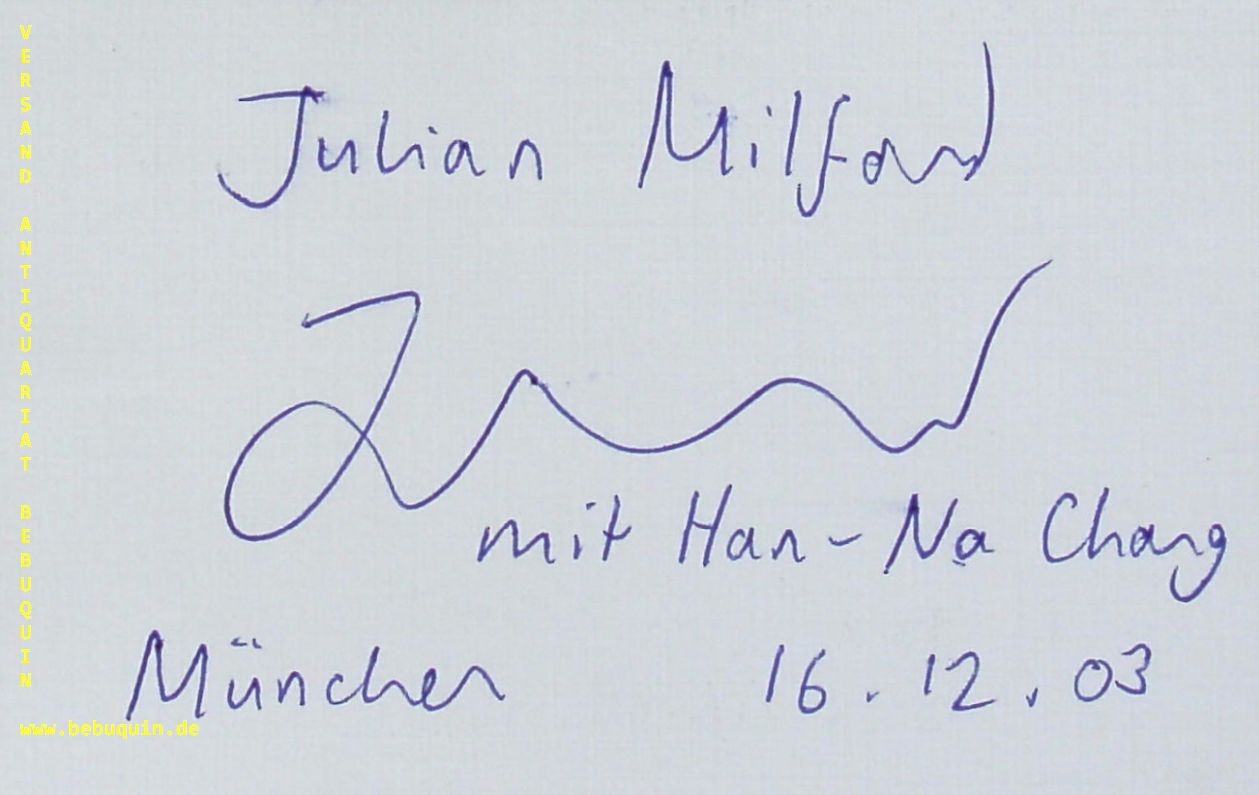 Julian Milford
mit Han-Na Chang
München 16.12.03
VERSAND ANTIQUARIAT BEBUQUIN
www.bebuquin.de